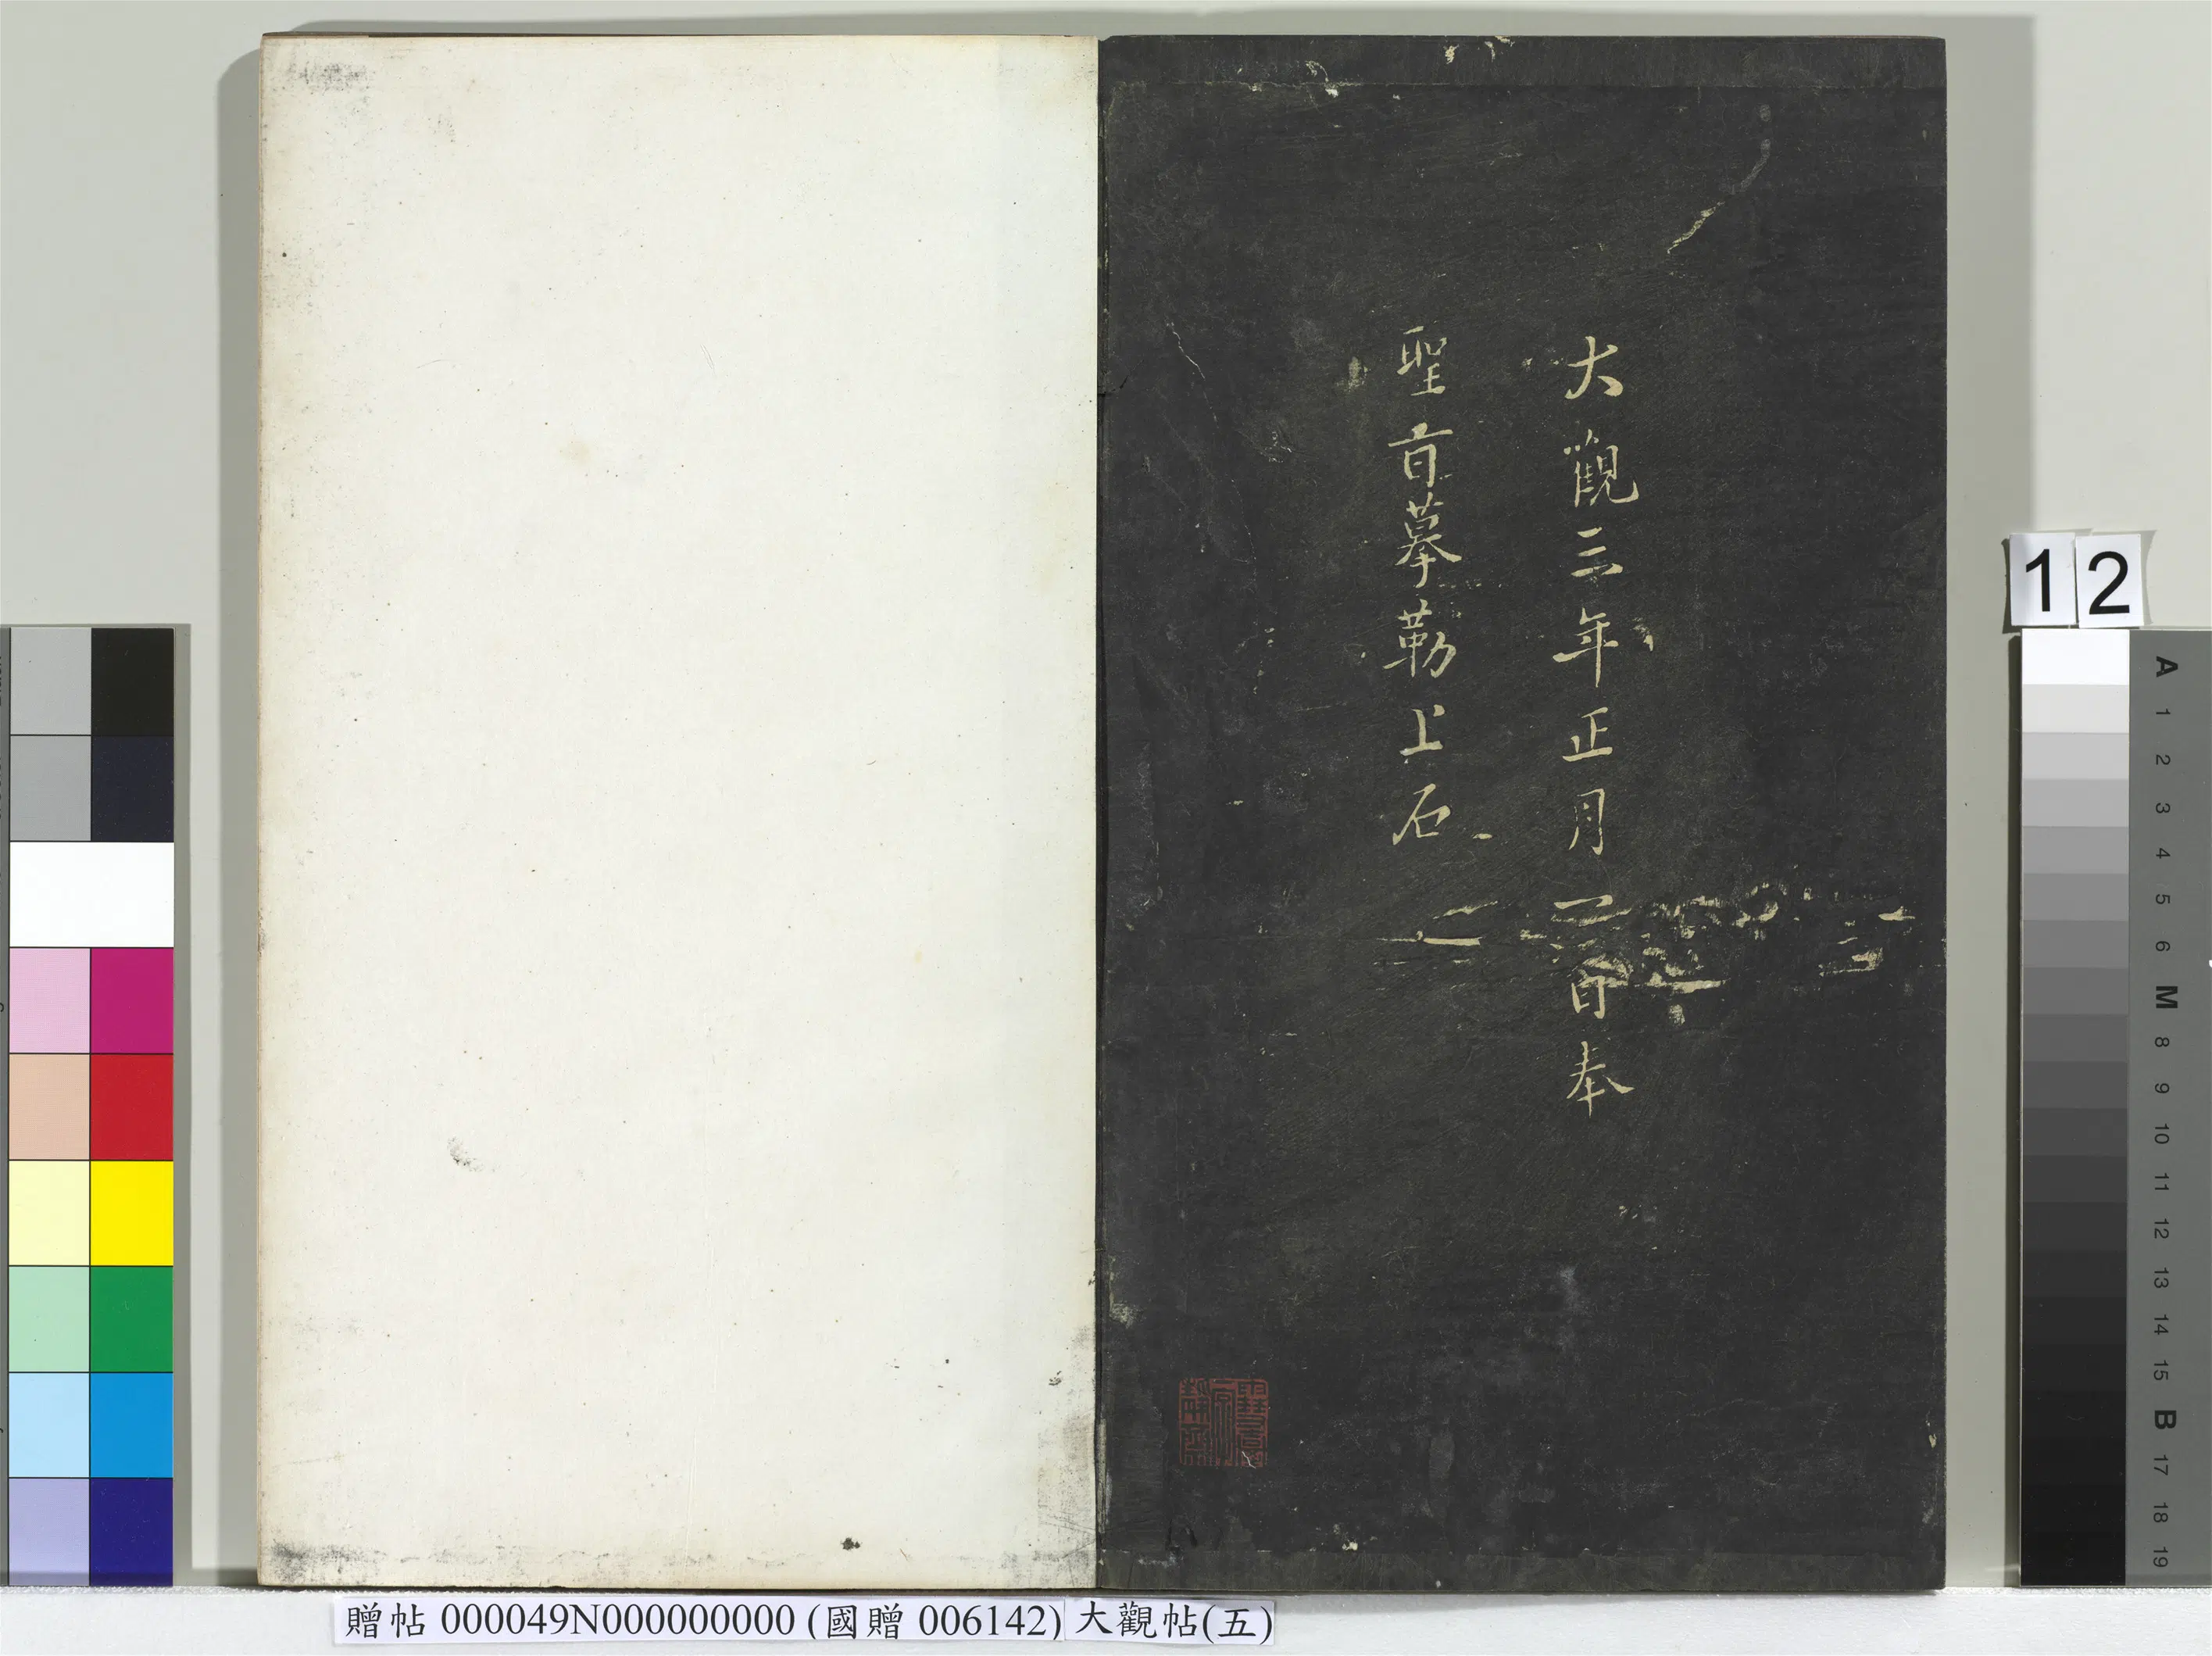 大觀三年正月一日奉
聖旨摹勒上石
12
A
1
2
3
4
5
6
M
8
9
10
11
12
13
14
15
B
17
18
19
贈帖 000049N000000000 (國贈 006142) 大觀帖(五)